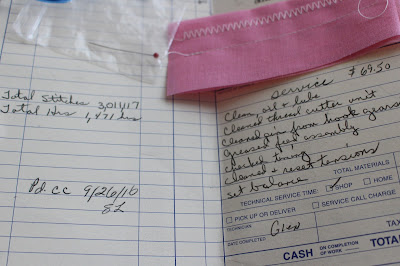 Total Stitches 3,011,117
Total Hrs 1,471 hrs
Pd. CC 9/26/16
Service $69.50
Clean, oil & lube
Cleaned thread cutter unit
Cleaned pin from hook gears
Greased feed assembly
checked timing
cleaned & reset tensions
set balance
TOTAL MATERIALS
TECHNICAL SERVICE TIME: SHOP HOME
PICK UP OR DELIVER SERVICE CALL CHARGE
TECHNICIAN Glen
TAX
DATE COMPLETED
CASH ON COMPLETION OF WORK TOTAL